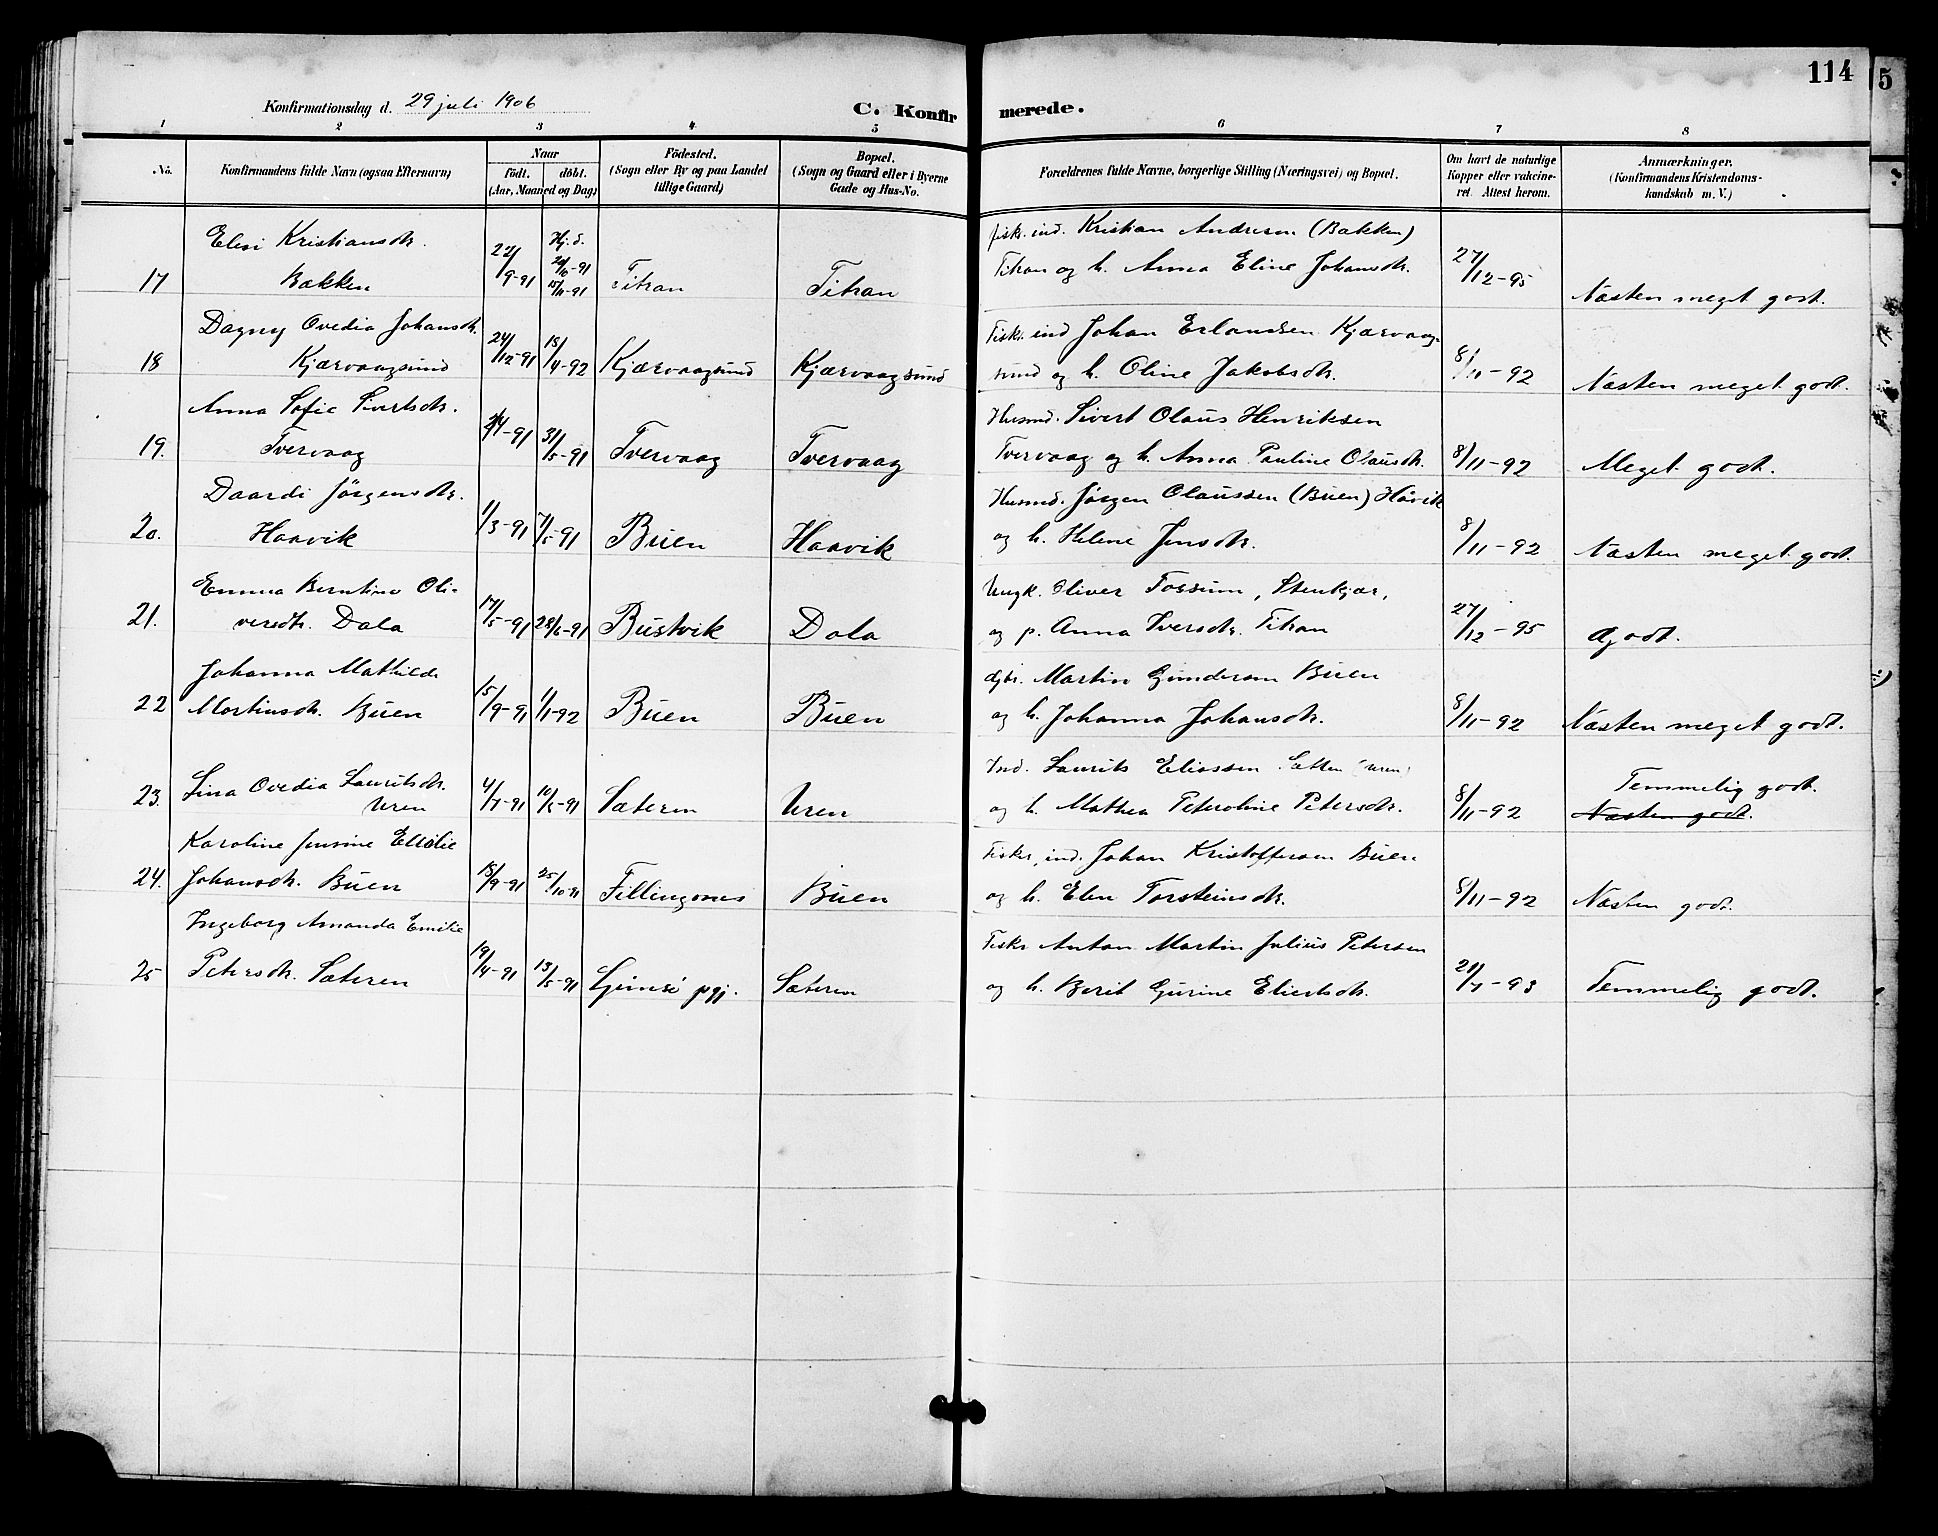 114
5
Konfirmationsdag d. 29 juli 1906
C. Konfirmerede.
1 2 3 4 5 6 7 8
No.
Konfirmandens fulde Navn (ogsaa Efternavn)
Naar
födt. döbt.
(Aar, Maaned og Dag)
Födested.
(Sogn eller By og paa Landet
tillige Gaard)
Bopæl.
(Sogn og Gaard eller i Byerne
Gade og Hus-No.
Forældrenes fulde Navne, borgerlige Stilling (Næringsvei) og Bopæl.
Om havt de naturlige
Kopper eller vakcine-
ret. Attest herom.
Anmærkninger.
(Konfirmandens Kristendoms-
kundskab m. V.)
Kristiansdtr. Hj.d. fisk. ind. Kristian Andresen (Bakken)
17 Bakken 22/9-91 15/11-91 Titran Titran Titran og h. Anna Eline Johansdtr. 27/12-95 Næsten meget godt.
Dagny Ovedia Johansdtr. Fisk. ind Johan Erlandsen Kjærvaag-
18 Kjærvaagsund 24/12-91 18/4-92 Kjærvaagsund Kjærvaagsund sund og h. Oline Jakobsdtr. 8/11-92 Næsten meget godt.
Anna Sofie Sivertsdtr. Husmd. Sivert Olaus Henriksen
19. Tvervaag 91 31/5-91 Tvervaag Tvervaag Tvervaag og h. Anna Pauline Olausdtr. 8/11-92 Meget godt.
Daardi Jörgensdtr. Husmd. Jörgen Olaussen (Buen) Håvik
20. Haavik 1/3-91 7/5-91 Buen Haavik og h. Helene Jensdtr. 8/11-92 Næsten meget godt.
Emma Berntine Oli- Ungk. Oliver Fossum, Stenkjær,
21. versdtr. Dala 17/5-91 28/6-91 Bustvik Dala og p. Anna Iversdtr. Titran 27/12-95 Godt.
Johanna Mathilde Gbr. Martin Gundersen Buen
22 Martinsdtr. Buen 15/9-91 1/1-92 Buen Buen og h. Johanna Johansdtr. 8/11-92 Næsten meget godt.
Lina Ovedia Lauritsdtr. Ind. Laurits Eliassen Temmelig godt.
23. Uren 91 10/5-91 Sæteren Uren og h. Mathea Peteroline Petersdtr. 8/11-92 Næsten godt.
Karoline Jensine Fisk. ind. Johan Kristoffersen Buen
24. Johansdtr. Buen 18/9-91 25/10-91 Fillingsnes Buen og h. Elen Torsteinsdtr. 8/11-92 Næsten godt.
Ingeborg Amanda Emilie Fisk. Anton Martin Julius Petersen
25 Petersdtr. Sæteren 19/4-91 13/5-91 Gimsö pgj. Sæteren og h. Berit Gurine Eliertsdtr. 93 Temmelig godt.